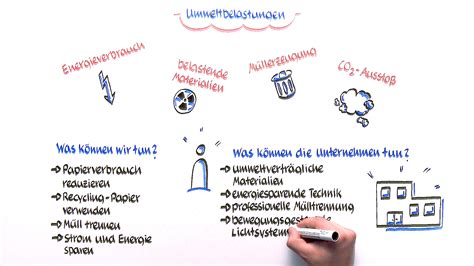 Umweltbelastungen
Energieverbrauch
belastende
Materialien
Müllerzeugung
CO₂-Ausstoß
Was können wir tun?
→ Papierverbrauch
reduzieren
→ Recycling-Papier
verwenden
→ Müll trennen
→ Strom und Energie
sparen
Was können die Unternehmen tun?
→ umweltverträgliche
Materialien
→ energiesparende Technik
→ professionelle Mülltrennung
→
Lichtsystem